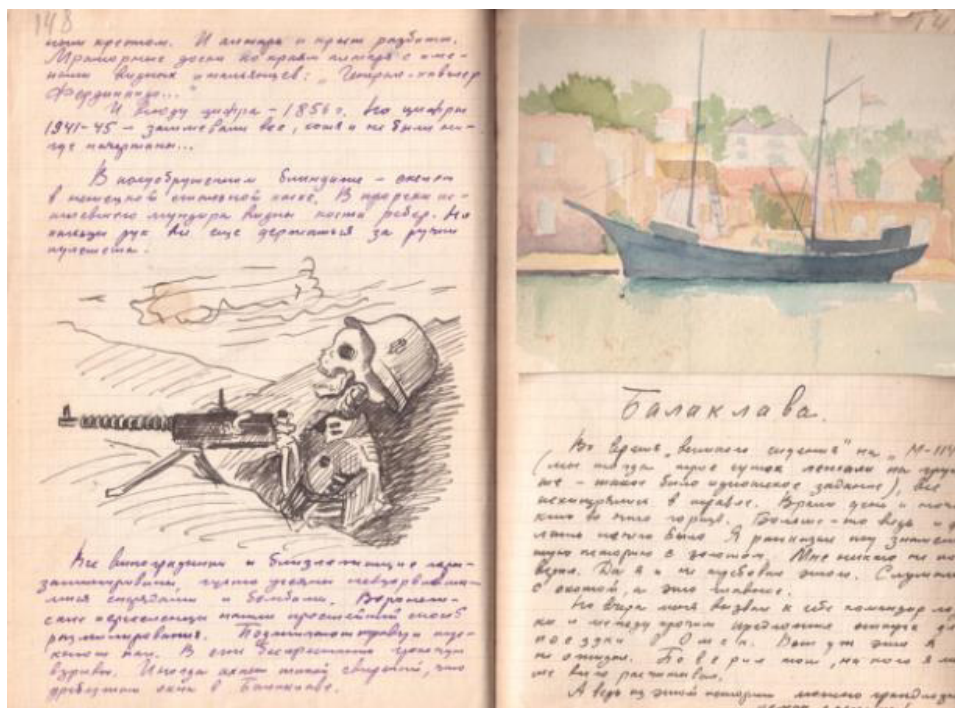 148
ным крестом. И алтарь и крест разбиты.
Мраморные доски по краям алтаря с име-
нами видных итальянцев: "Генерал-кавалер
Фердинандо..."
И внизу цифра - 1856 г. Но цифры
1941-45 - заслоняли все, хотя и не были ни-
где начертаны...
В полуобрушенном блиндаже - скелет
в немецкой стальной каске. В прорехи ис-
тлевшего мундира видны кости ребер. Но
пальцы рук все еще держатся за ручки
пулемета.
Все виноградники и близлежащие
заминированы, густо усеяны невзорвавши-
мися снарядами и бомбами. Воронеж-
ские переселенцы нашли простейший способ
разминирования. Поджигают траву и
пал. В степи беспрестанно грохочут
взрывы. Иногда ахает такой, что
дребезжат окна в Балаклаве.
Балаклава.
Во время "великого сидения" на "М-114
(мы тогда трое суток лежали на грун-
те - такое было идиотское задание), все
в травле. Врали день и ночь
кто во что горазд. Больше-то ведь и д
лать нечего было. Я рассказал эту
историю с золотом. Мне никто не по
верил. Да я и не требовал этого. Слушали
с охотой, а это главное.
Но вчера меня вызвал к себе командир ло
ки и между прочим предложил отпуск д
поездки в Омск. Вот уж этого я
не ожидал. Поверил тому, на кого я
не рассчитывал.
А ведь из этой истории можно